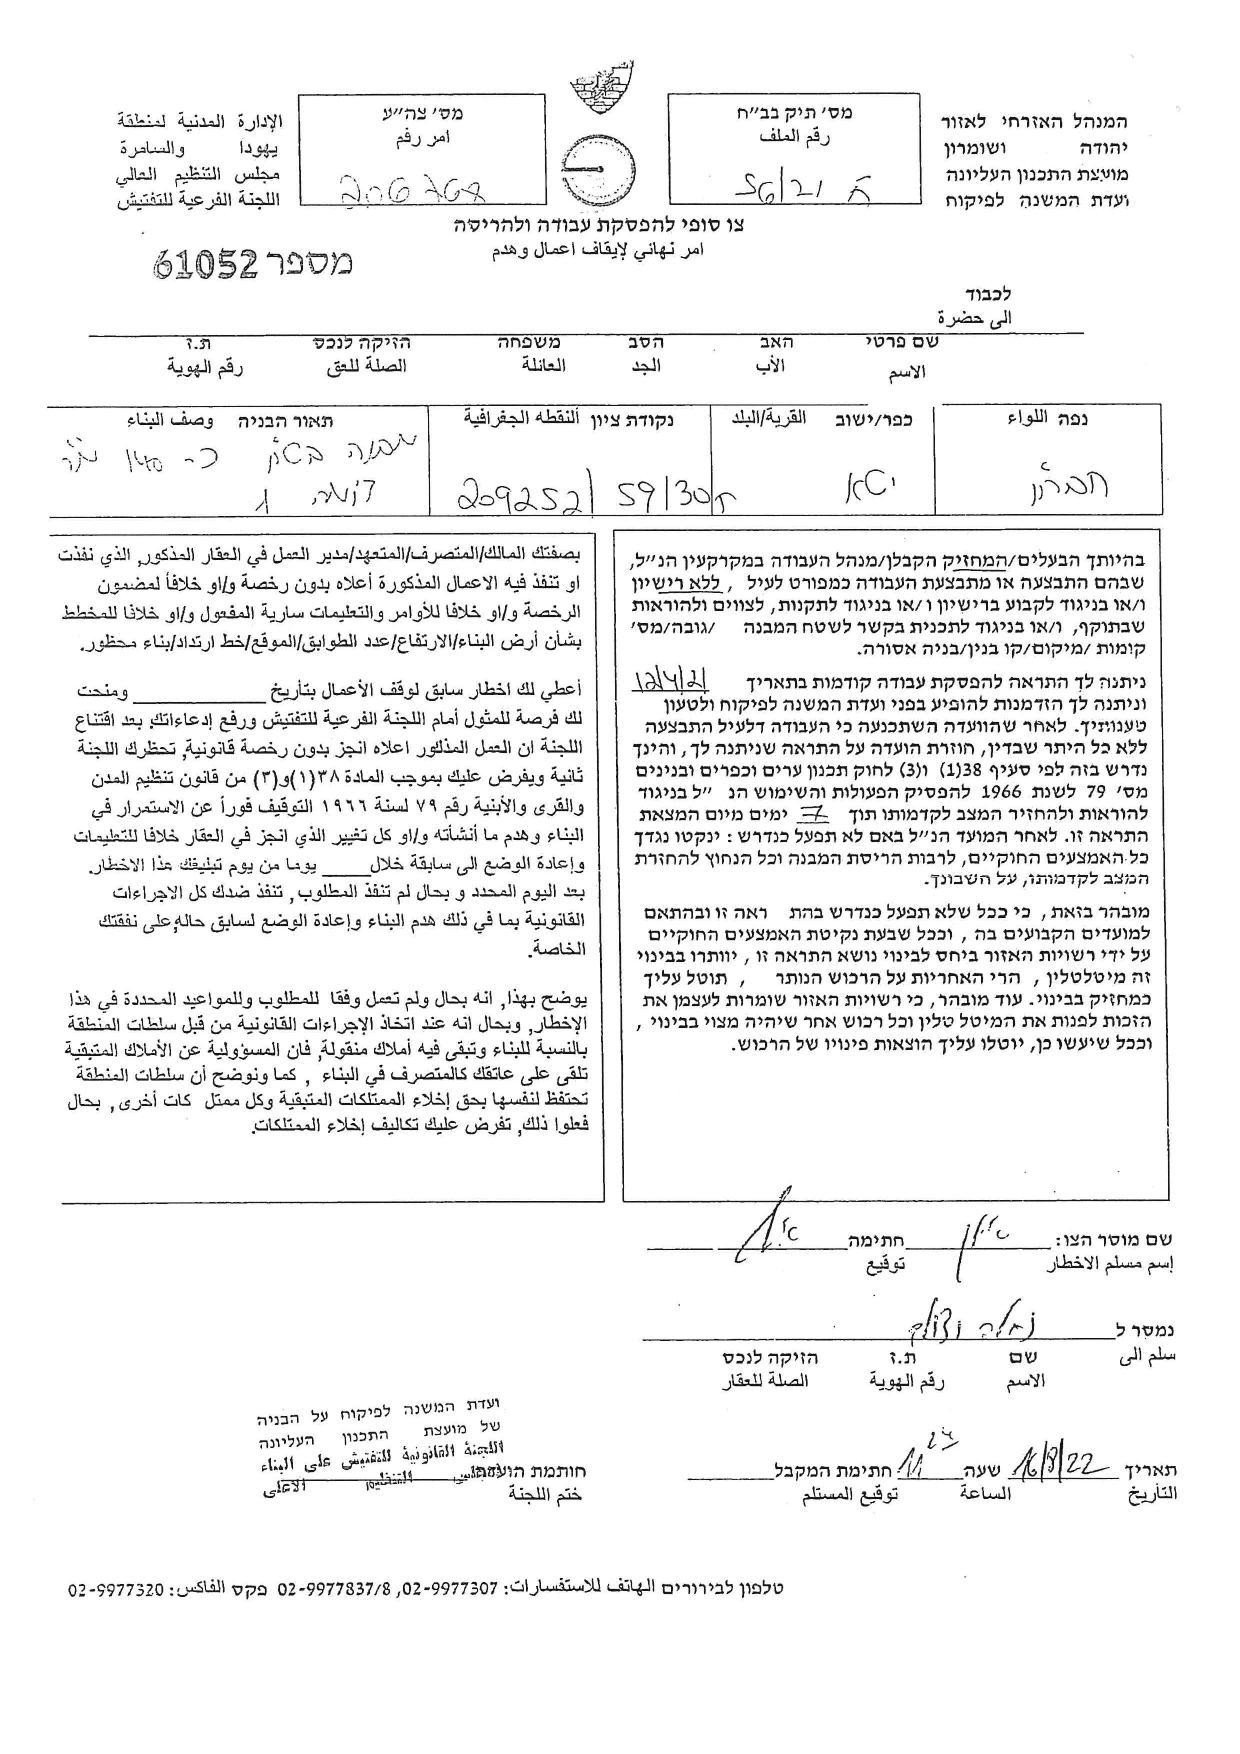 המנהל האזרחי לאזור
יהודה ושומרון
מועצת התכנון העליונה
ועדת המשנה לפיקוח
מס׳ תיק בב״ח
رقم الملف
ח 56/21
מס׳ צה״ע
امر رقم
206768
الإدارة المدنية لمنطقة
يهودا والسامرة
مجلس التنظيم العالي
اللجنة الفرعية للتفتيش
צו סופי להפסקת עבודה ולהריסה
امر نهائي لإيقاف اعمال وهدم
מספר 61052
לכבוד
الى حضرة
שם פרטי האב הסב משפחה הזיקה לנכס ת.ז
الاسم الأب الجد العائلة الصلة للعق رقم الهوية
נפה اللواء
חברון
כפר/ישוב القرية/البلد
יטא
נקודת ציון النقطه الجغرافية
209252/59130
תאור הבניה وصف البناء
מבנה
קומה 1
בהיותך הבעלים/המחזיק הקבלן/מנהל העבודה במקרקעין הנ״ל,
שבהם התבצעה או מתבצעת העבודה כמפורט לעיל , ללא רישיון
ו/או בניגוד לקבוע ברישיון ו /או בניגוד לתקנות, לצווים ולהוראות
שבתוקף, ו/או בניגוד לתכנית בקשר לשטח המבנה /גובה/מס׳
קומות /מיקום/קו בנין/בניה אסורה.
ניתנה לך התראה להפסקת עבודה קודמות בתאריך 12/4/21
וניתנה לך הזדמנות להופיע בפני ועדת המשנה לפיקוח ולטעון
טענותיך. לאחר שהוועדה השתכנעה כי העבודה דלעיל התבצעה
ללא כל היתר שבדין, חוזרת הועדה על התראה שניתנה לך, והינך
נדרש בזה לפי סעיף 38(1) ו(3) לחוק תכנון ערים וכפרים ובנינים
מס׳ 79 לשנת 1966 להפסיק הפעולות והשימוש הנ ״ל בניגוד
להוראות ולהחזיר המצב לקדמותו תוך 7 ימים מיום המצאת
התראה זו. לאחר המועד הנ״ל באם לא תפעל כנדרש : ינקטו נגדך
כל האמצעים החוקיים, לרבות הריסת המבנה וכל הנחוץ להחזרת
המצב לקדמותו, על חשבונך.
מובהר בזאת , כי ככל שלא תפעל כנדרש בהת ראה זו ובהתאם
למועדים הקבועים בה , וככל שבעת נקיטת האמצעים החוקיים
על ידי רשויות האזור ביחס לבינוי נושא התראה זו , יוותרו בבינוי
זה מיטלטלין , הרי האחריות על הרכוש הנותר , תוטל עליך
כמחזיק בבינוי. עוד מובהר, כי רשויות האזור שומרות לעצמן את
הזכות לפנות את המיטל טלין וכל רכוש אחר שיהיה מצוי בבינוי ,
וככל שיעשו כן, יוטלו עליך הוצאות פינויו של הרכוש.
بصفتك المالك/المتصرف/المتعهد/مدير العمل في العقار المذكور, الذي نفذت
او تنفذ فيه الاعمال المذكورة أعلاه بدون رخصة و/او خلافاً لمضمون
الرخصة و/او خلافا للأوامر والتعليمات سارية المفعول و/او خلافا للمخطط
بشأن أرض البناء/الارتفاع/عدد الطوابق/الموقع/خط ارتداد/بناء محظور.
أعطي لك اخطار سابق لوقف الأعمال بتأريخ ____________ ومنحت
لك فرصة للمثول أمام اللجنة الفرعية للتفتيش ورفع إدعاءاتك, بعد اقتناع
اللجنة ان العمل المذكور اعلاه انجز بدون رخصة قانونية, تحظرك اللجنة
ثانية ويفرض عليك بموجب المادة ٣٨(١)و(٣) من قانون تنظيم المدن
والقرى والأبنية رقم ٧٩ لسنة ١٩٦٦ التوقيف فوراً عن الاستمرار في
البناء وهدم ما أنشأته و/او كل تغيير الذي انجز في العقار خلافا للتعليمات
وإعادة الوضع الى سابقة خلال_____ يوما من يوم تبليغك هذا الاخطار.
بعد اليوم المحدد و بحال لم تنفذ المطلوب, تنفذ ضدك كل الاجراءات
القانونية بما في ذلك هدم البناء وإعادة الوضع لسابق حاله, على نفقتك
الخاصة.
يوضح بهذا, انه بحال ولم تعمل وفقا للمطلوب وللمواعيد المحددة في هذا
الإخطار, وبحال انه عند اتخاذ الإجراءات القانونية من قبل سلطات المنطقة
بالنسبة للبناء وتبقى فيه أملاك منقولة, فان المسؤولية عن الأملاك المتبقية
تلقى على عاتقك كالمتصرف في البناء , كما ونوضح أن سلطات المنطقة
تحتفظ لنفسها بحق إخلاء الممتلكات المتبقية وكل ممتل كات أخرى, بحال
فعلوا ذلك, تفرض عليك تكاليف إخلاء الممتلكات.
שם מוסר הצו: חתימה
إسم مسلم الاخطار توقيع
נמסר ל
سلم الى
שם ת.ז הזיקה לנכס
الاسم رقم الهوية الصلة للعقار
תאריך 16/8/22 שעה חתימת המקבל
التأريخ الساعة توقيع المستلم
ועדת המשנה לפיקוח על הבניה
של מועצת התכנון העליונה
اللجنة القانونية للتفتيش على البناء
التنظيم الاعلى
חותמת הועדה
ختم اللجنة
טלפון לבירורים الهاتف للاستفسارات: 02-9977307, 02-9977837/8 פקס الفاكس: 02-9977320